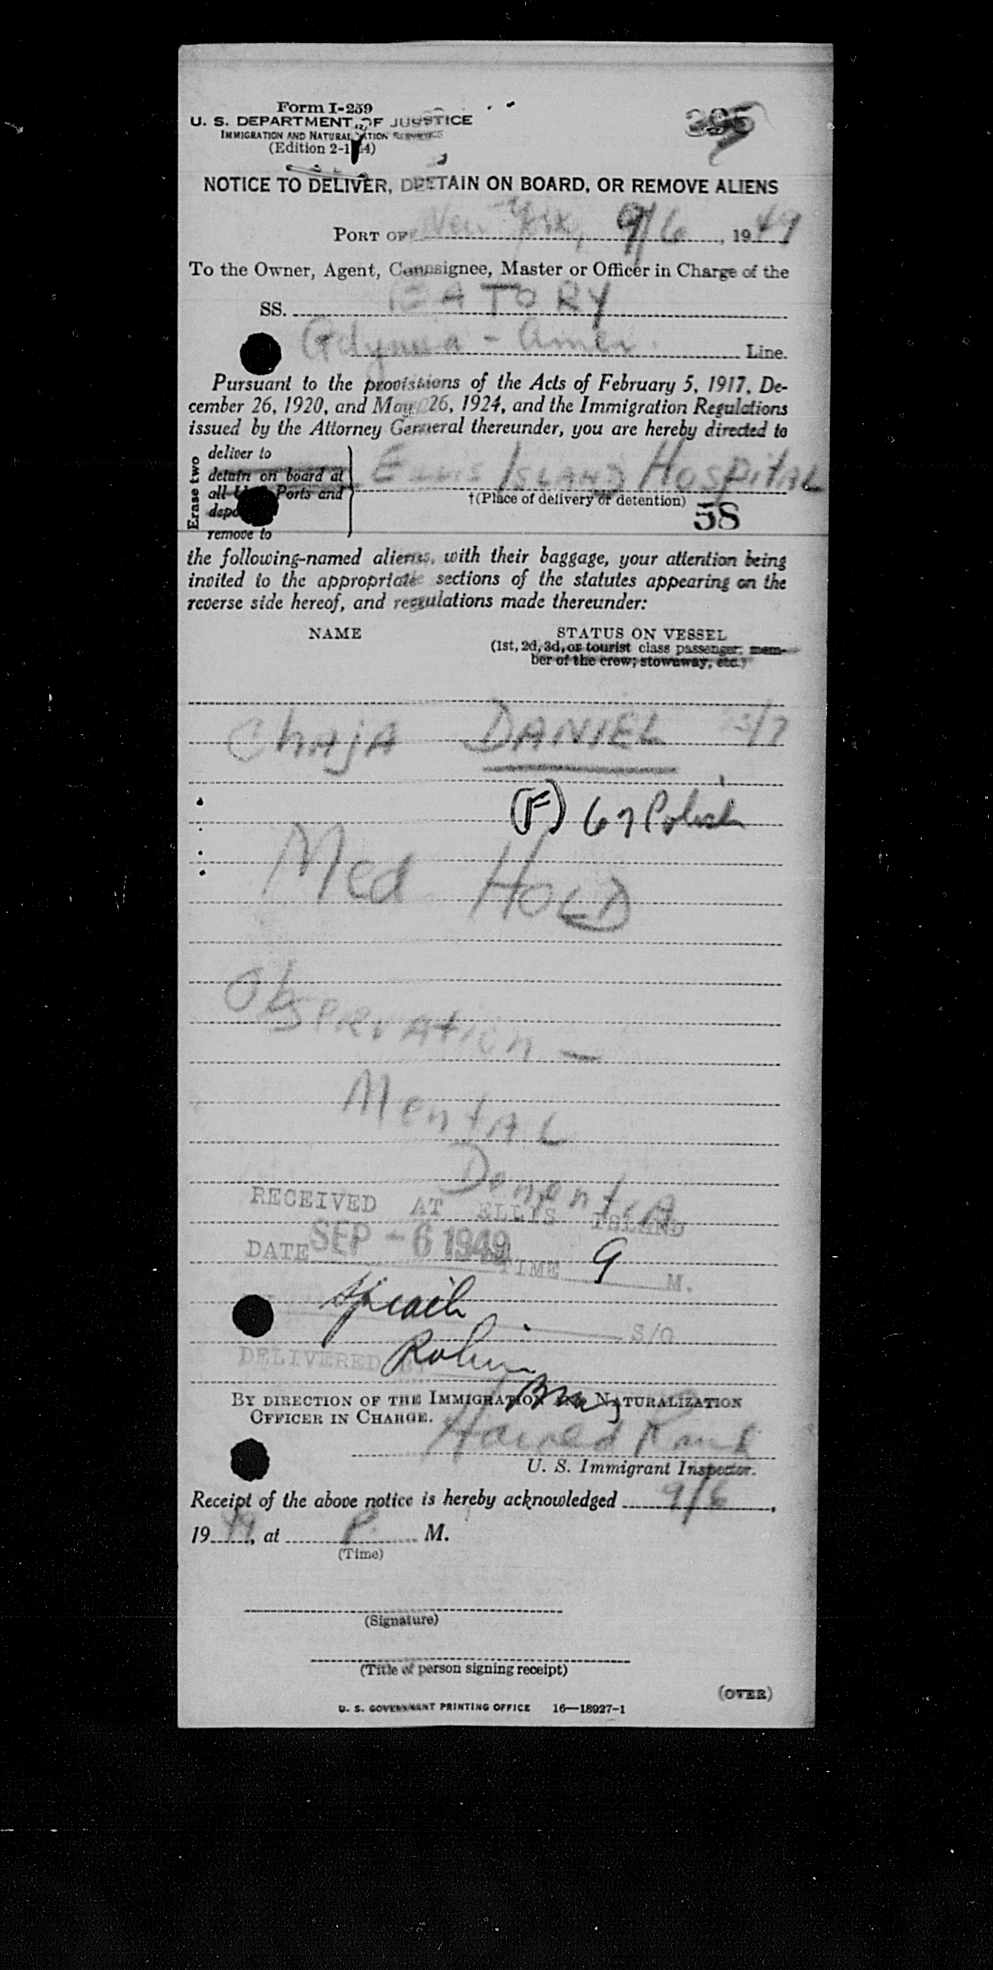 Form I-259
U. S. DEPARTMENT OF JUSTICE
IMMIGRATION AND NATURALIZATION SERVICE
(Edition 2-1-44)
NOTICE TO DELIVER, DETAIN ON BOARD, OR REMOVE ALIENS
PORT OF New York, 9/6, 1949
To the Owner, Agent, Consignee, Master or Officer in Charge of the
SS. BATORY
Gdynia - Amer. Line.
Pursuant to the provisions of the Acts of February 5, 1917, De-
cember 26, 1920, and May 26, 1924, and the Immigration Regulations
issued by the Attorney General thereunder, you are hereby directed to
Erase two
deliver to
detain on board at
all U. S. Ports and
deport
remove to
ELLIS ISLAND HOSPITAL
†(Place of delivery or detention)
58
the following-named aliens, with their baggage, your attention being
invited to the appropriate sections of the statutes appearing on the
reverse side hereof, and regulations made thereunder:
NAME STATUS ON VESSEL
(1st, 2d, 3d, or tourist class passenger; mem-
ber of the crew; stowaway, etc.)
Chaja DANIEL /7
(F) 67 Polish
Med HOLD
Observation —
Mental
Dementia
RECEIVED AT ELLIS ISLAND
DATE SEP - 6 1949 TIME 9 M.
S/O
DELIVERED
BY DIRECTION OF THE IMMIGRATION AND NATURALIZATION
OFFICER IN CHARGE.
U. S. Immigrant Inspector.
Receipt of the above notice is hereby acknowledged 9/6,
1949, at P. M.
(Time)
(Signature)
(Title of person signing receipt)
(OVER)
U. S. GOVERNMENT PRINTING OFFICE 16—18927-1